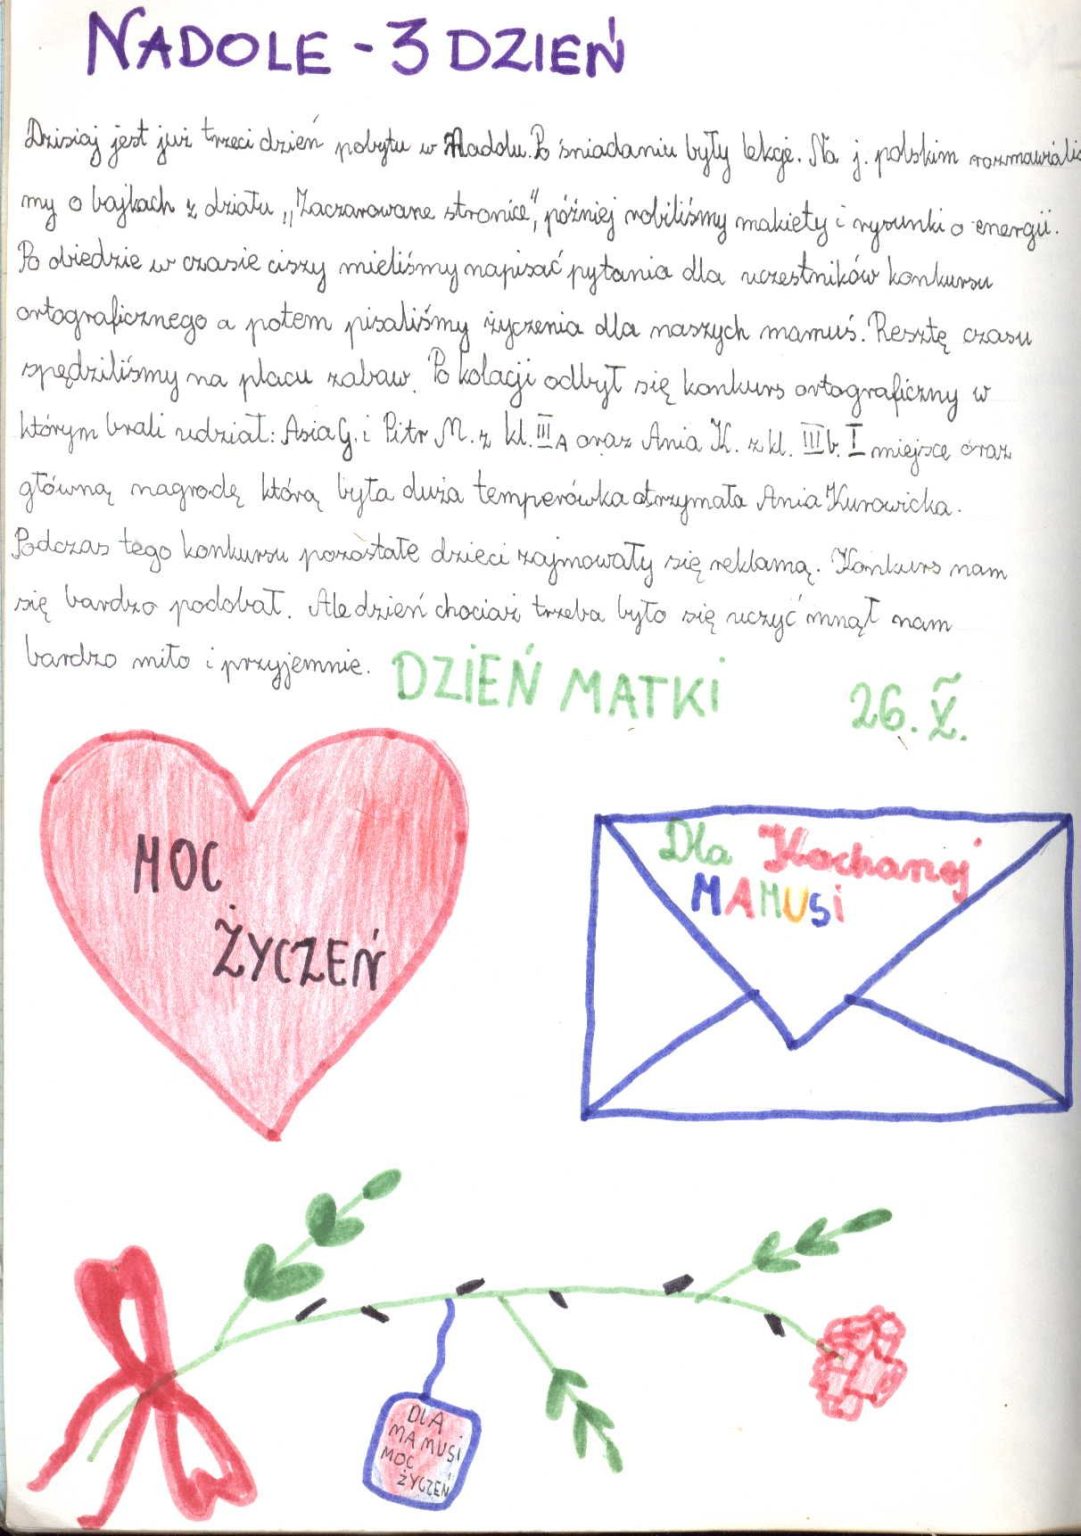 NADOLE - 3 DZIEŃ
Dzisiaj jest już trzeci dzień pobytu w Nadolu. Po śniadaniu były lekcje. Na j. polskim rozmawiali
my o bajkach z działu „Zaczarowane stronice", później robiliśmy makiety i rysunki o energii.
Po obiedzie w czasie ciszy mieliśmy napisać pytania dla uczestników konkursu
ortograficznego a potem pisaliśmy życzenia dla naszych mamuś. Resztę czasu
spędziliśmy na placu zabaw. Po kolacji odbył się konkurs ortograficzny w
którym brali udział: Asia G. i Pitr M. z kl. III A oraz Ania K. z kl. III b. I miejsce oraz
główną nagrodę którą była duża temperówka otrzymała Ania Kurowicka.
Podczas tego konkursu pozostałe dzieci zajmowały się reklamą. Konkurs nam
się bardzo podobał. Ale dzień chociaż trzeba było się uczyć mnął nam
bardzo miło i przyjemnie.
DZIEŃ MATKI 26. V.
MOC
ŻYCZEŃ
Dla Kochanej
MAMUSi
DLA
MAMUSi
MOC
ŻYCZEŃ